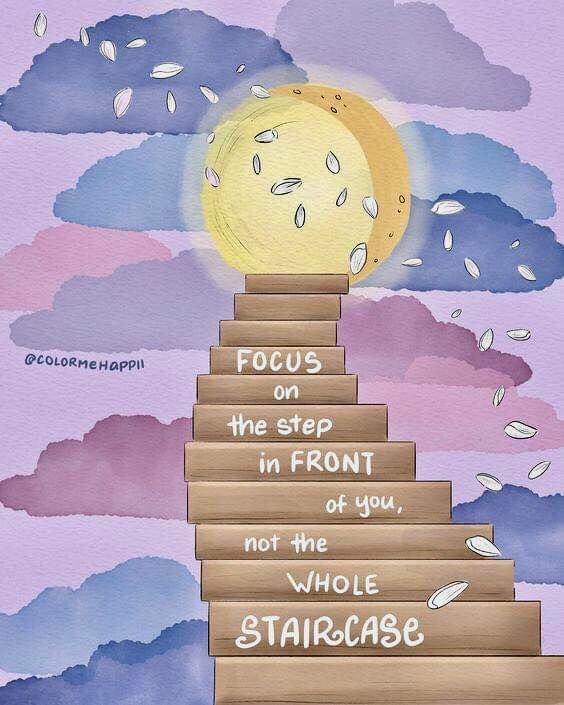 @COLORMEHAPPII
FOCUS
on
the step
in FRONT
of you,
not the
WHOLE
STAIRCASE